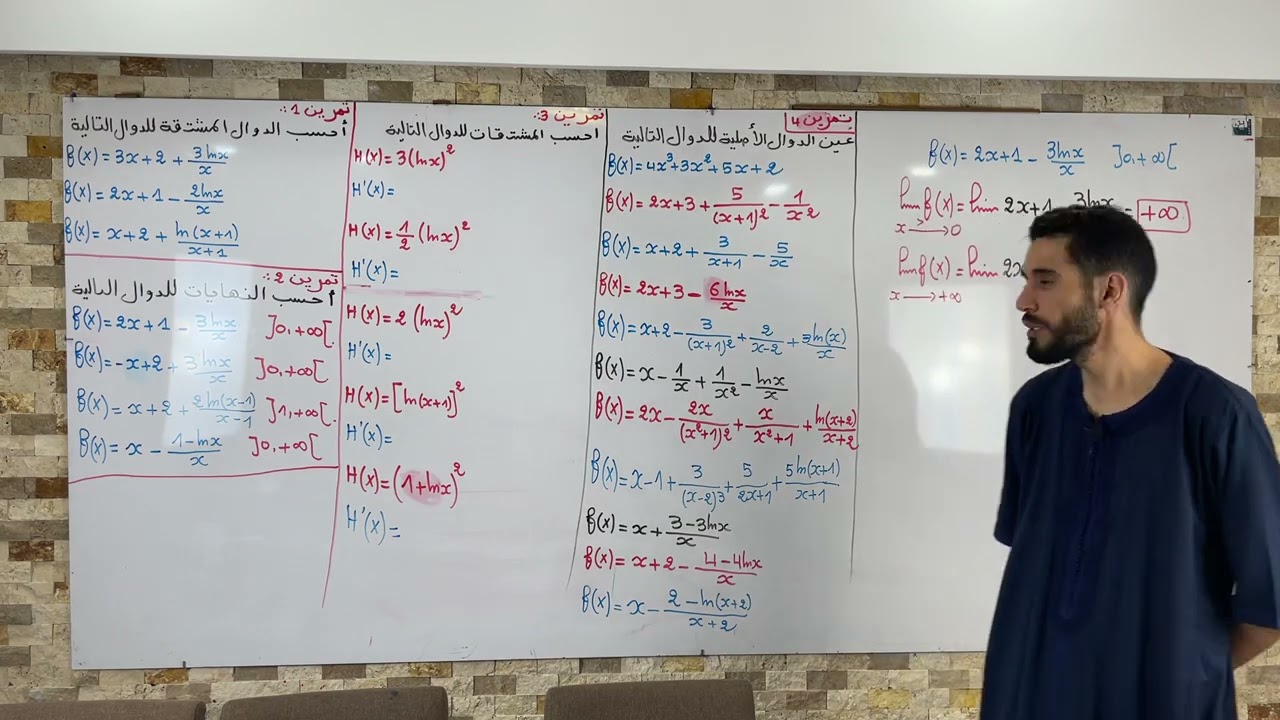 تمرين 1:
أحسب الدوال المشتقة للدوال التالية
f(x) = 3x + 2 + 3lnx/x
f(x) = 2x + 1 − 2lnx/x
f(x) = x + 2 + ln(x+1)/x+1
تمرين 2:
أحسب النهايات للدوال التالية
f(x) = 2x + 1 − 3lnx/x ]0,+∞[
f(x) = −x + 2 + 3lnx/x ]0,+∞[
f(x) = x + 2 + 2ln(x−1)/x−1 ]1,+∞[
f(x) = x − 1−lnx/x ]0,+∞[
تمرين 3:
أحسب المشتقات للدوال التالية
H(x) = 3(lnx)²
H'(x) =
H(x) = 1/2 (lnx)²
H'(x) =
H(x) = 2(lnx)²
H'(x) =
H(x) = [ln(x+1)]²
H'(x) =
H(x) = (1+lnx)²
H'(x) =
تمرين 4
عين الدوال الأصلية للدوال التالية
f(x) = 4x³ + 3x² + 5x + 2
f(x) = 2x + 3 + 5/(x+1)² − 1/x²
f(x) = x + 2 + 3/x+1 − 5/x
f(x) = 2x + 3 − 6lnx/x
f(x) = x + 2 − 3/(x+1)² + 2/x−2 + 3ln(x)/x
f(x) = x − 1/x + 1/x² − lnx/x
f(x) = 2x − 2x/(x²+1)² + x/x²+1 + ln(x+2)/x+2
f(x) = x − 1 + 3/(x−2)³ + 5/2x+1 + 5ln(x+1)/x+1
f(x) = x + 3−3lnx/x
f(x) = x + 2 − 4−4lnx/x
f(x) = x − 2−ln(x+2)/x+2
f(x) = 2x + 1 − 3lnx/x ]0,+∞[
lim f(x) = lim 2x+1 − 3lnx = +∞
x →> 0
lim f(x) = lim 2x
x → +∞